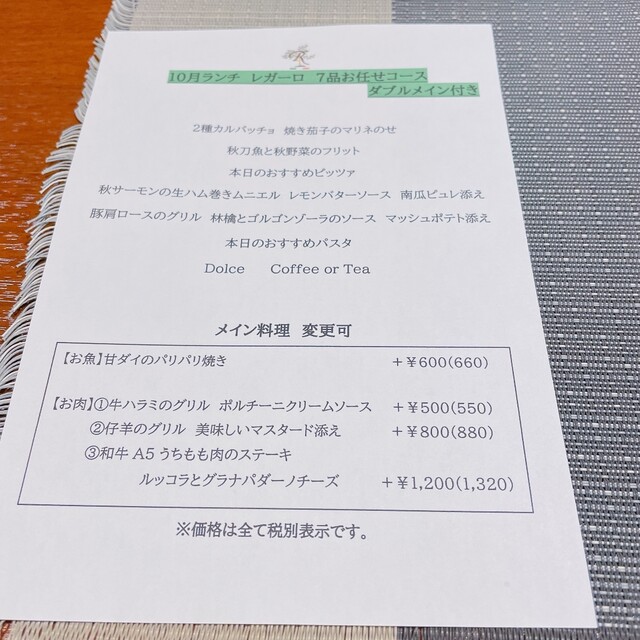 R
10月ランチ レガーロ 7品お任せコース
ダブルメイン付き
2種カルパッチョ 焼き茄子のマリネのせ
秋刀魚と秋野菜のフリット
本日のおすすめピッツァ
秋サーモンの生ハム巻きムニエル レモンバターソース 南瓜ピュレ添え
豚肩ロースのグリル 林檎とゴルゴンゾーラのソース マッシュポテト添え
本日のおすすめパスタ
Dolce Coffee or Tea
メイン料理 変更可
【お魚】甘ダイのパリパリ焼き +￥600(660)
【お肉】①牛ハラミのグリル ポルチーニクリームソース +￥500(550)
②仔羊のグリル 美味しいマスタード添え +￥800(880)
③和牛 A5 うちもも肉のステーキ
ルッコラとグラナパダーノチーズ +￥1,200(1,320)
※価格は全て税別表示です。